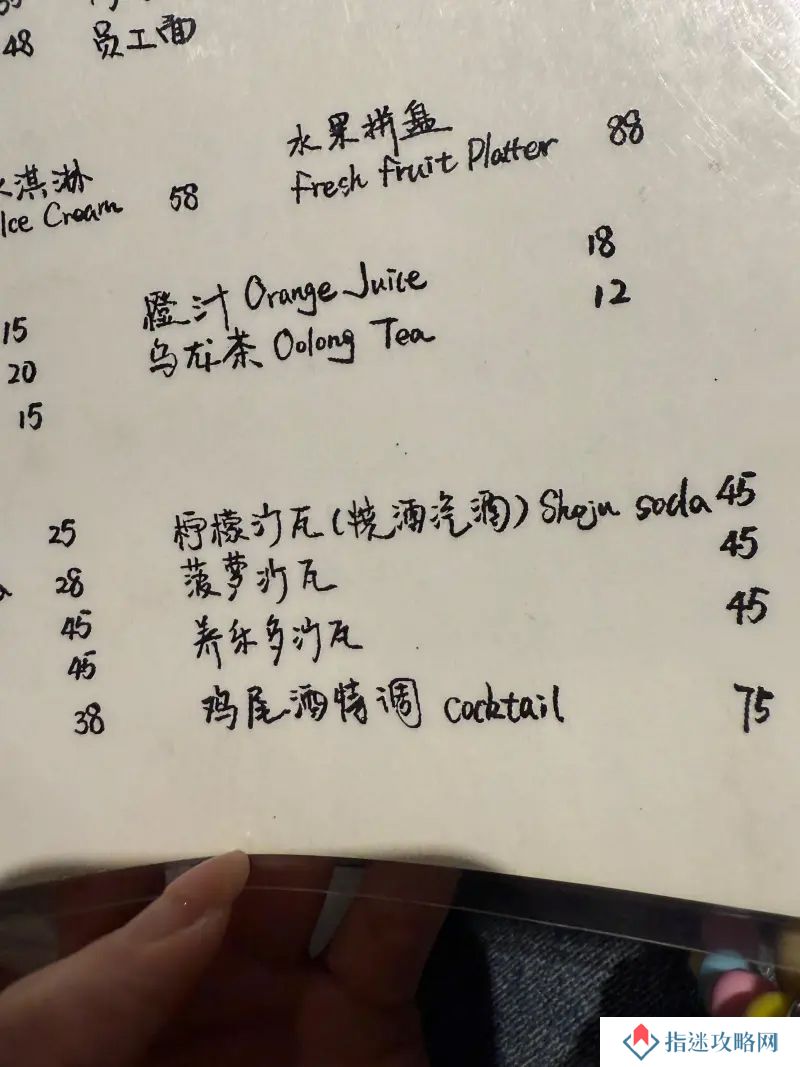 48 员工面
水果拼盘 88
Fresh Fruit Platter
淇淋 58
Ice Cream
18
橙汁 Orange Juice
12
15
乌龙茶 Oolong Tea
20
15
25 柠檬沙瓦(烧酒汽酒) Shoju soda 45
28 菠萝沙瓦 45
45 养乐多沙瓦 45
45
38 鸡尾酒特调 cocktail 75
指迷攻略网